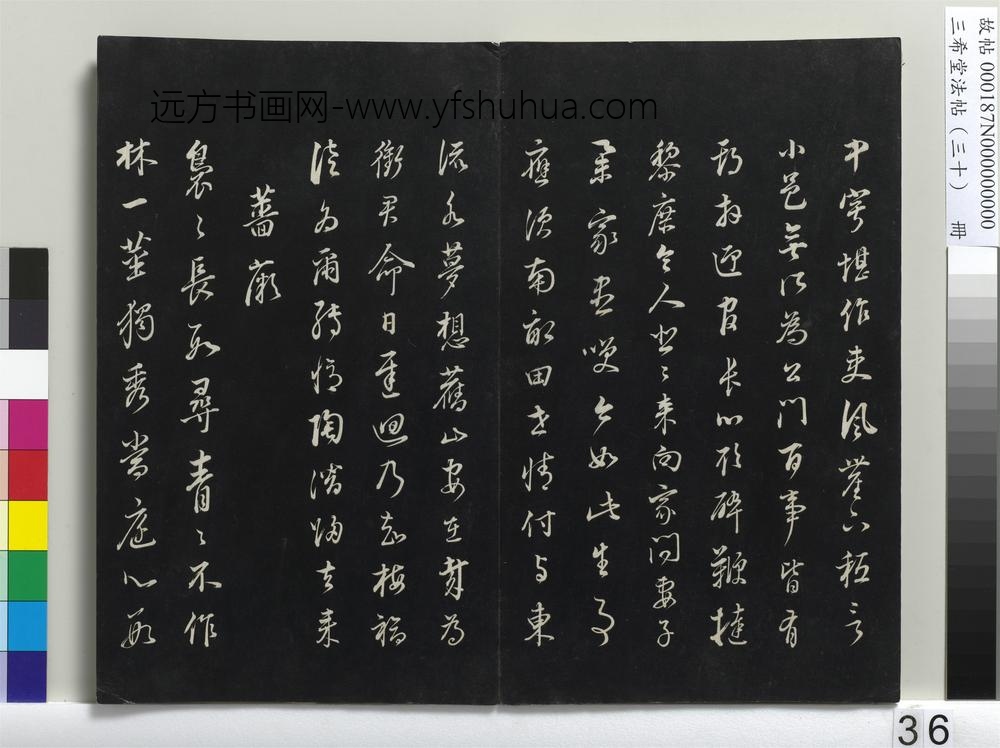 故帖 000187N000000000
三希堂法帖（三十） 冊
远方书画网-www.yfshuhua.com
中寧堪作吏風塵下秖言
小邑無所為公門百事皆有
期拜迎官長心欲碎鞭撻
黎庶令人悲〻来向家問妻子
舉家盡咲今如此生事
應須南畝田世情付与東
流水夢想舊山安在哉為
銜君命日遲迴乃知梅福
徒為爾轉憶陶潛歸去来
薔薇
裊〻長數尋青〻不作
林一莖獨秀當庭心數
36